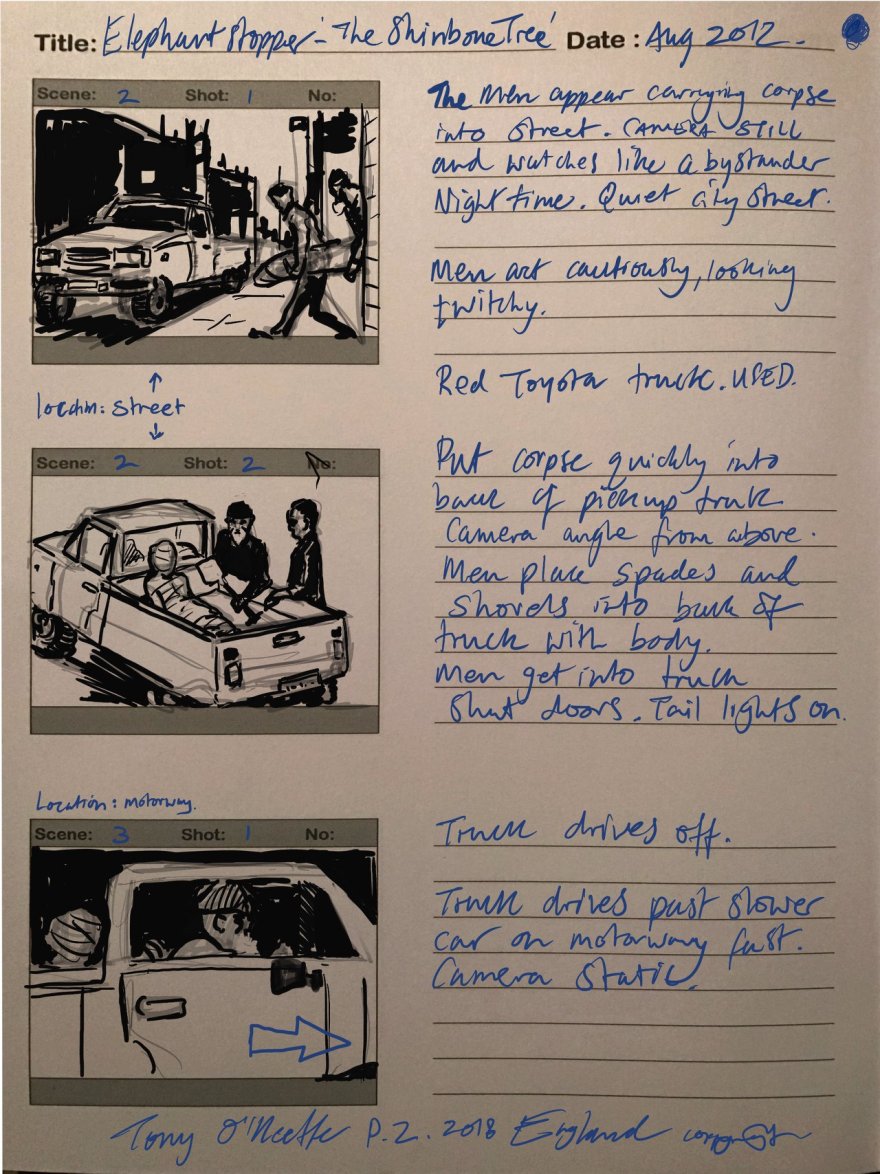 Title: Elephant Stopper - 'The Shinbone Tree' Date : Aug 2012.
Scene: 2 Shot: 1 No:
The Men appear carrying corpse
into street. CAMERA STILL
and watches like a bystander
Night time. Quiet city street.
Men act cautiously, looking
twitchy.
Red Toyota truck. USED.
location: street
Scene: 2 Shot: 2 No:
Put corpse quickly into
back of pickup truck
Camera angle from above.
Men place spades and
shovels into back of
truck with body.
Men get into truck
Shut doors. Tail lights on.
Location: motorway.
Scene: 3 Shot: 1 No:
Truck drives off.
Truck drives past slower
car on motorway fast.
Camera Static.
Tony O'Neeffe P.2. 2018 England